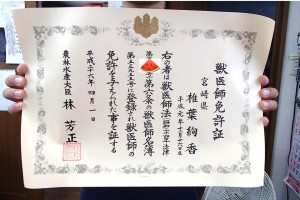 獣医師免許証
宮崎県
椎葉絢香
平成元年十二月二十六日生
右の者は獣医師法
第六条の獣医師名簿
に登録され獣医師の
免許を与えられた事を証する
平成二十六年四月一日
農林水産大臣 林芳正